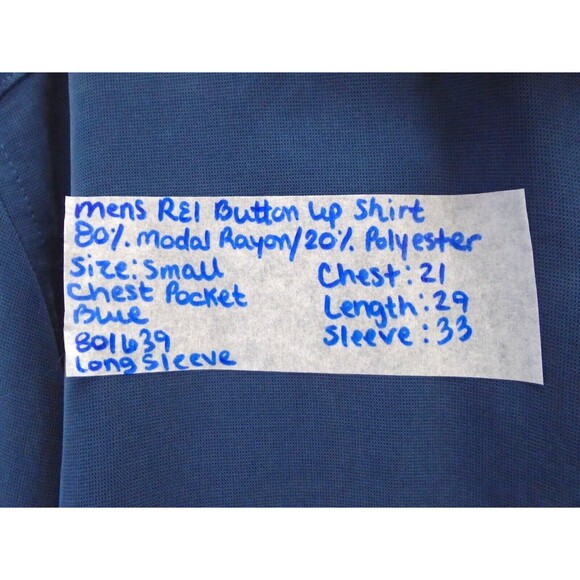 mens REI Button up Shirt
80% modal Rayon/20% Polyester
Size: Small
Chest Pocket
Blue
801639
Long Sleeve
Chest: 21
Length: 29
Sleeve: 33